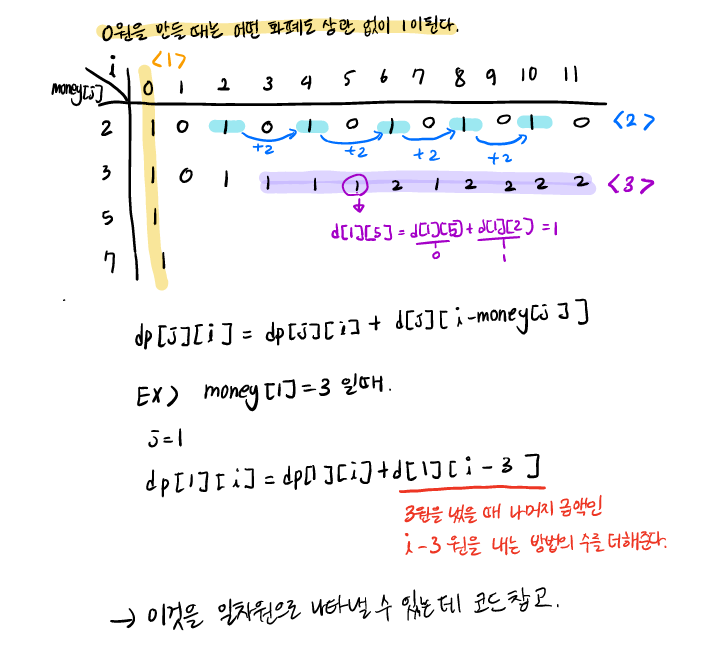 0원을 만들 때는 어떤 화폐도 상관 없이 1이된다.
<1>
i
money[j]
0 1 2 3 4 5 6 7 8 9 10 11
2 1 0 1 0 1 0 1 0 1 0 1 0 <2>
+2 +2 +2 +2
3 1 0 1 1 1 1 2 1 2 2 2 2 <3>
d[1][5] = d[1][5] + d[1][2] = 1
0 1
5 1
7 1
dp[j][i] = dp[j][i] + d[j][i-money[j]]
EX) money[1]=3 일때.
j=1
dp[1][i] = dp[1][i]+d[1][i-3]
3원을 냈을 때 나머지 금액인
i-3 원을 내는 방법의 수를 더해준다.
→ 이것을 일차원으로 나타낼 수 있는데 코드참고.